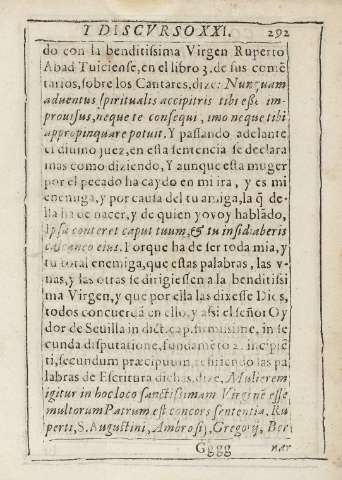 Y DISCVRSO XXI. 292
do con la benditissima Virgen Ruperto
Abad Tuiciense, en el libro 3. de sus comē
tarios, sobre los Cantares, dize: Nunquam
aduentus spiritualis accipitris tibi esse im-
prouisus, neque te consequi, imo neque tibi
appropinquare potuit. Y passando adelante
el diuino juez, en esta sentencia se declara
mas como diziendo, Y aunque esta muger
por el pecado ha caydo en mi ira, y es mi
enemiga, y por causa del tu amiga, la q̄ de-
lla ha de nacer, y de quien yo voy hablādo,
Ipsa conteret caput tuum, & tu insidiaberis
calcaneo eius. Porque ha de ser toda mia, y
tu total enemiga, que estas palabras, las v-
nas, y las otras se dirigiessen a la benditissi
ma Virgen, y que por ella las dixesse Dios,
todos concuerdā en ello, y assi el señor Oy
dor de Seuilla in dict. cap. firmissime, in se
cunda disputatione, fundamēto 2. incipiē
ti, secundum præcipuum, refiriendo las pa
labras de Escritura dichas, dize. Mulierem
igitur in hoc loco sanctissimam Virginē esse
multorum Patrum est concors sententia. Ru
perti, S. Augustini, Ambrosij, Gregorij, Ber
Gggg nar